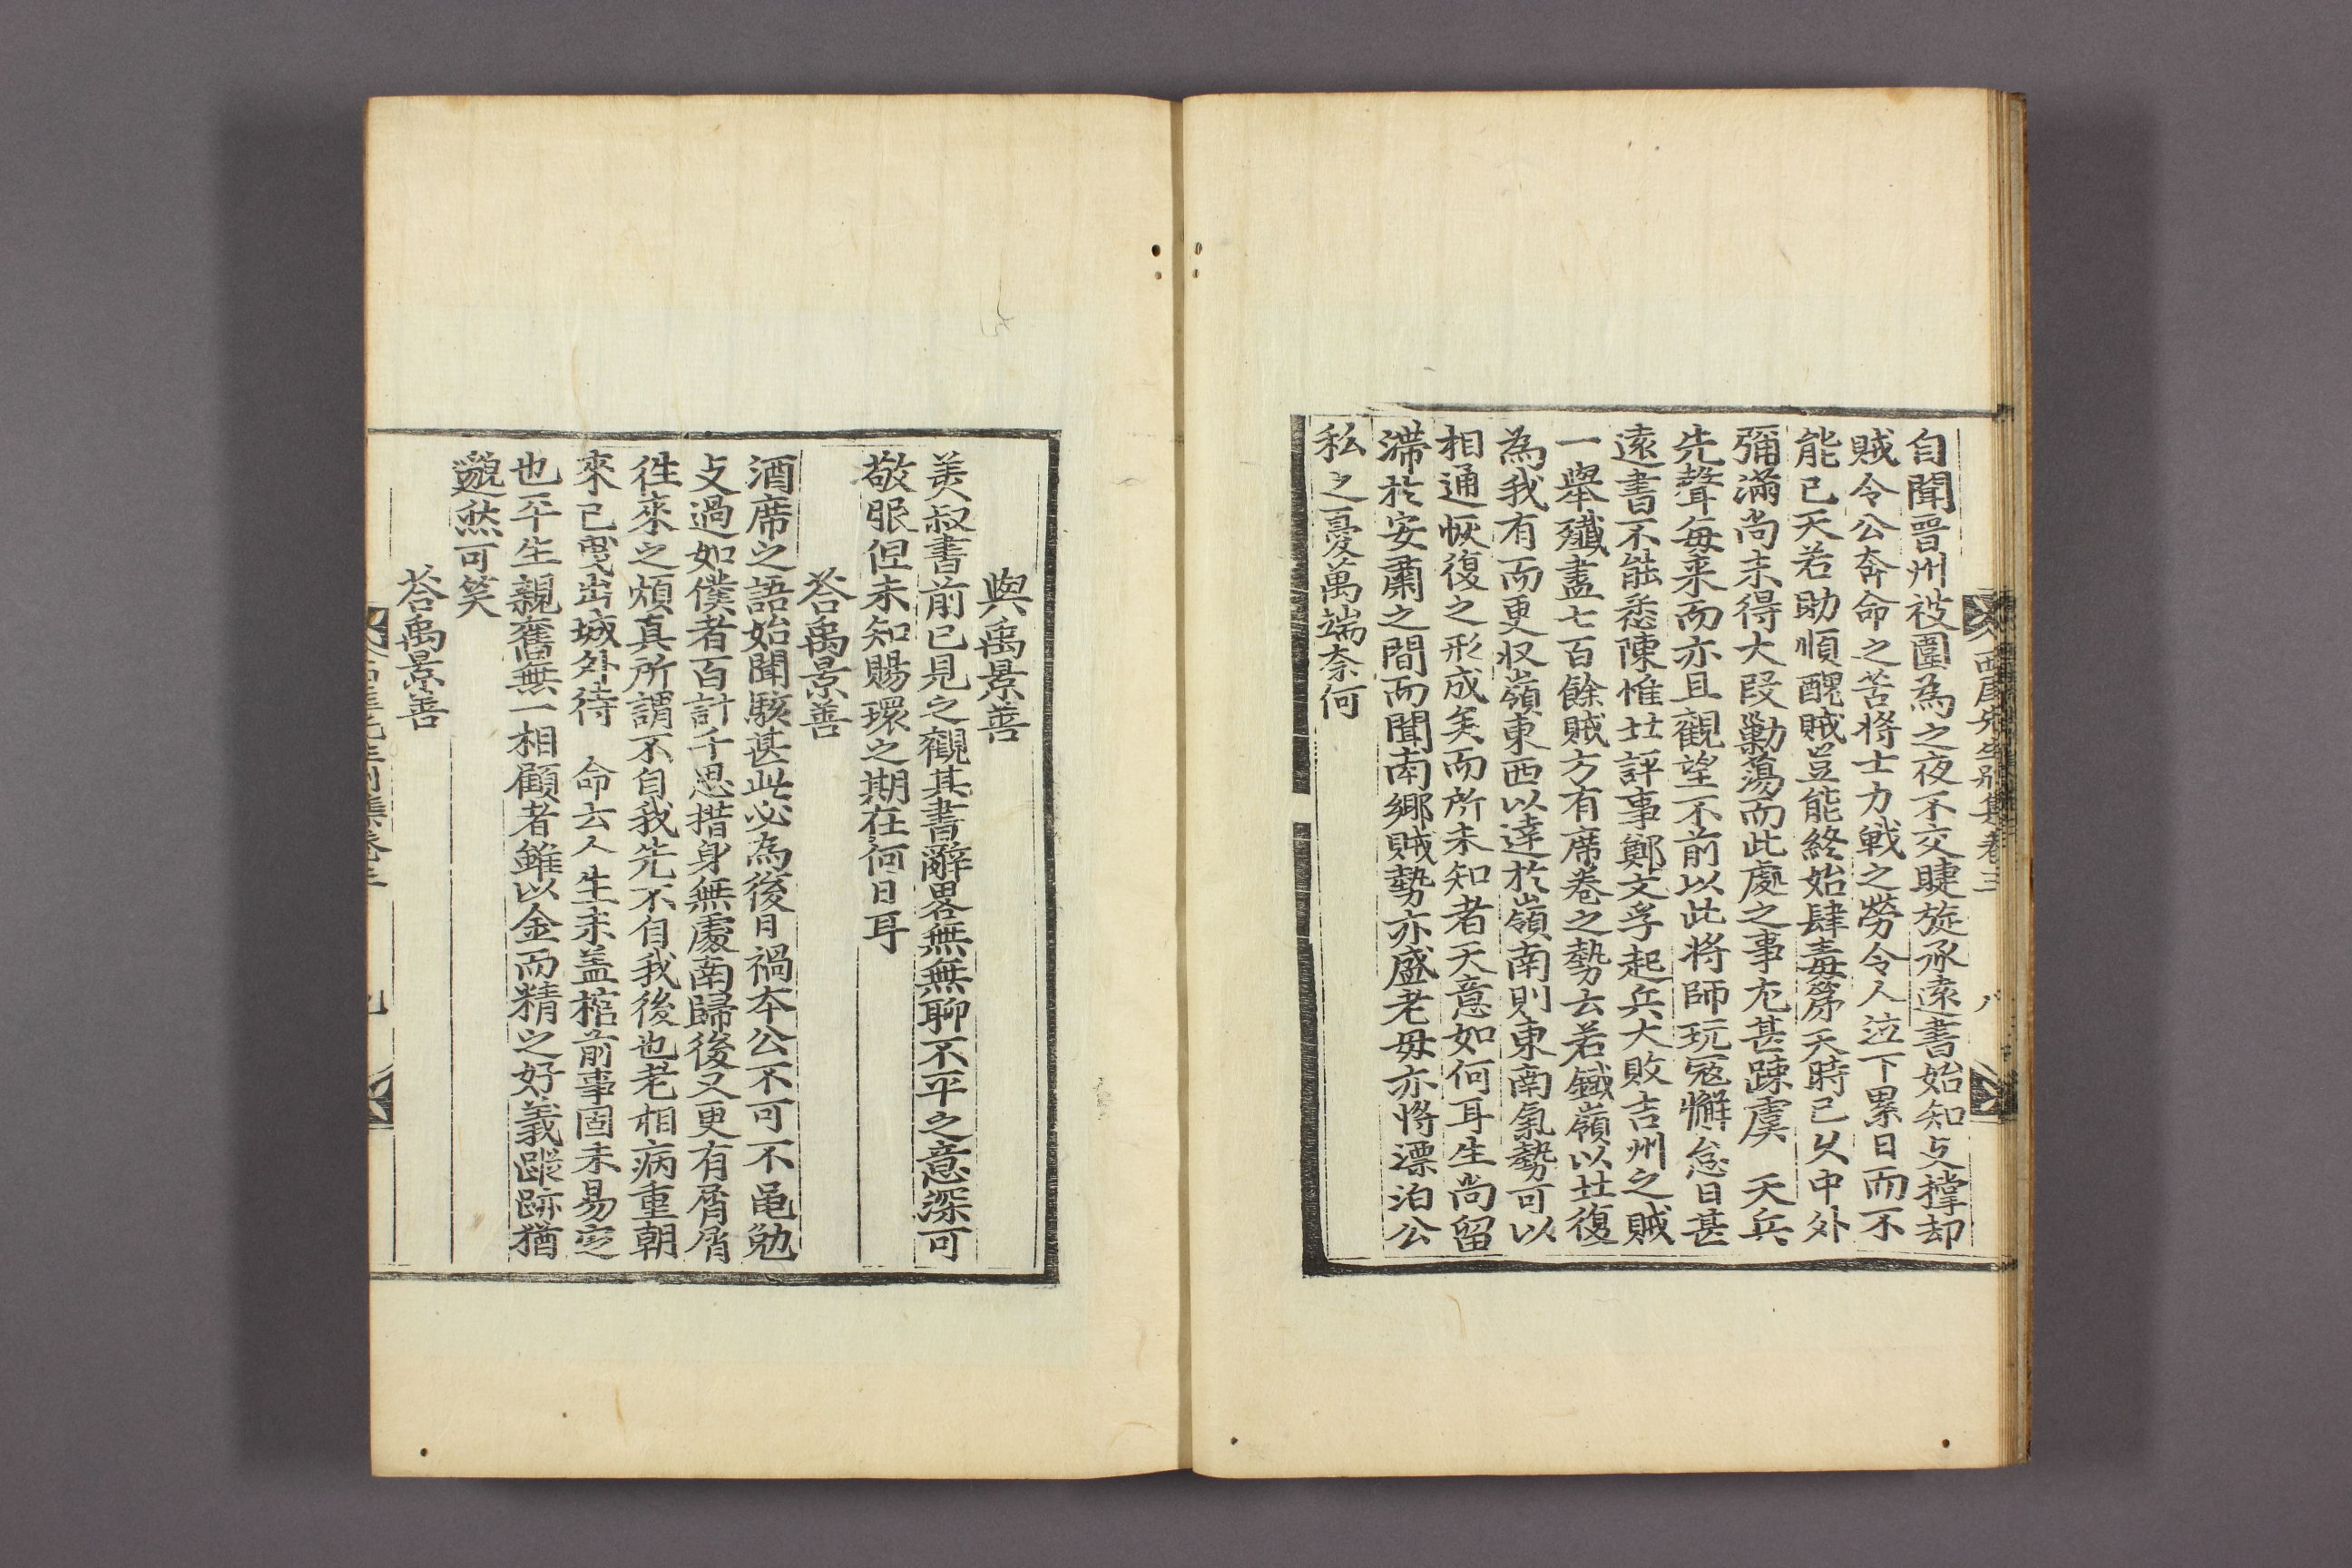 西厓先生別集卷三　八
自聞晋州被圍為之夜不交睫旋承遠書始知攴撑却
賊令公奔命之苦將士力戦之勞令人泣下累日而不
能已天若助順醜賊豈能終始肆毒第天時已久中外
彌滿尚未得大叚勦蕩而此處之事尤甚踈虞　天兵
先聲每来而亦且觀望不前以此將師玩寇懈怠日甚
遠書不能悉陳惟㘴評事鄭文孚起兵大敗吉州之賊
一舉殲盡七百餘賊方有席卷之勢云若鐵嶺以㘴復
為我有而更収嶺東西以達於嶺南則東南氣勢可以
相通恢復之形成矣而所未知者天意如何耳生尚留
滯於安肅之間而聞南郷賊勢亦盛老母亦將漂泊公
私之憂萬端柰何
與禹景善
美叔書前已見之觀其書辭畧無無聊不平之意深可
敬服但未知賜環之期在何日耳
荅禹景善
酒席之語始聞駭甚此必為後日禍夲公不可不黽勉
攴過如僕者百計千思措身無處南歸後又更有屑屑
徃來之煩真所謂不自我先不自我後也老相病重朝
來已曳出城外待　命云人生未盖棺前事固未易定
也平生親舊無一相顧者雖以金而精之好義蹤跡猶
邈然可笑
荅禹景善